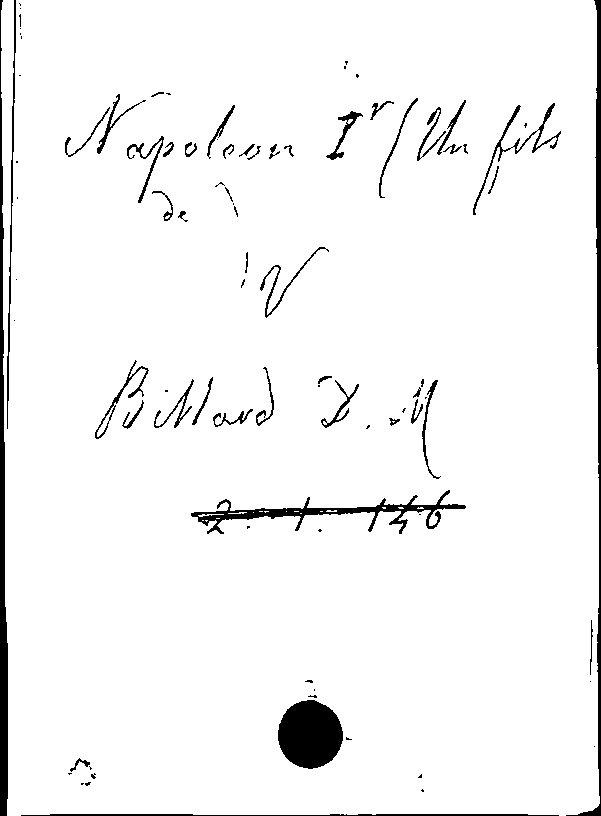 Napoleon Ir (Un fils
de )
V
Billard D. M
2. 1. 146